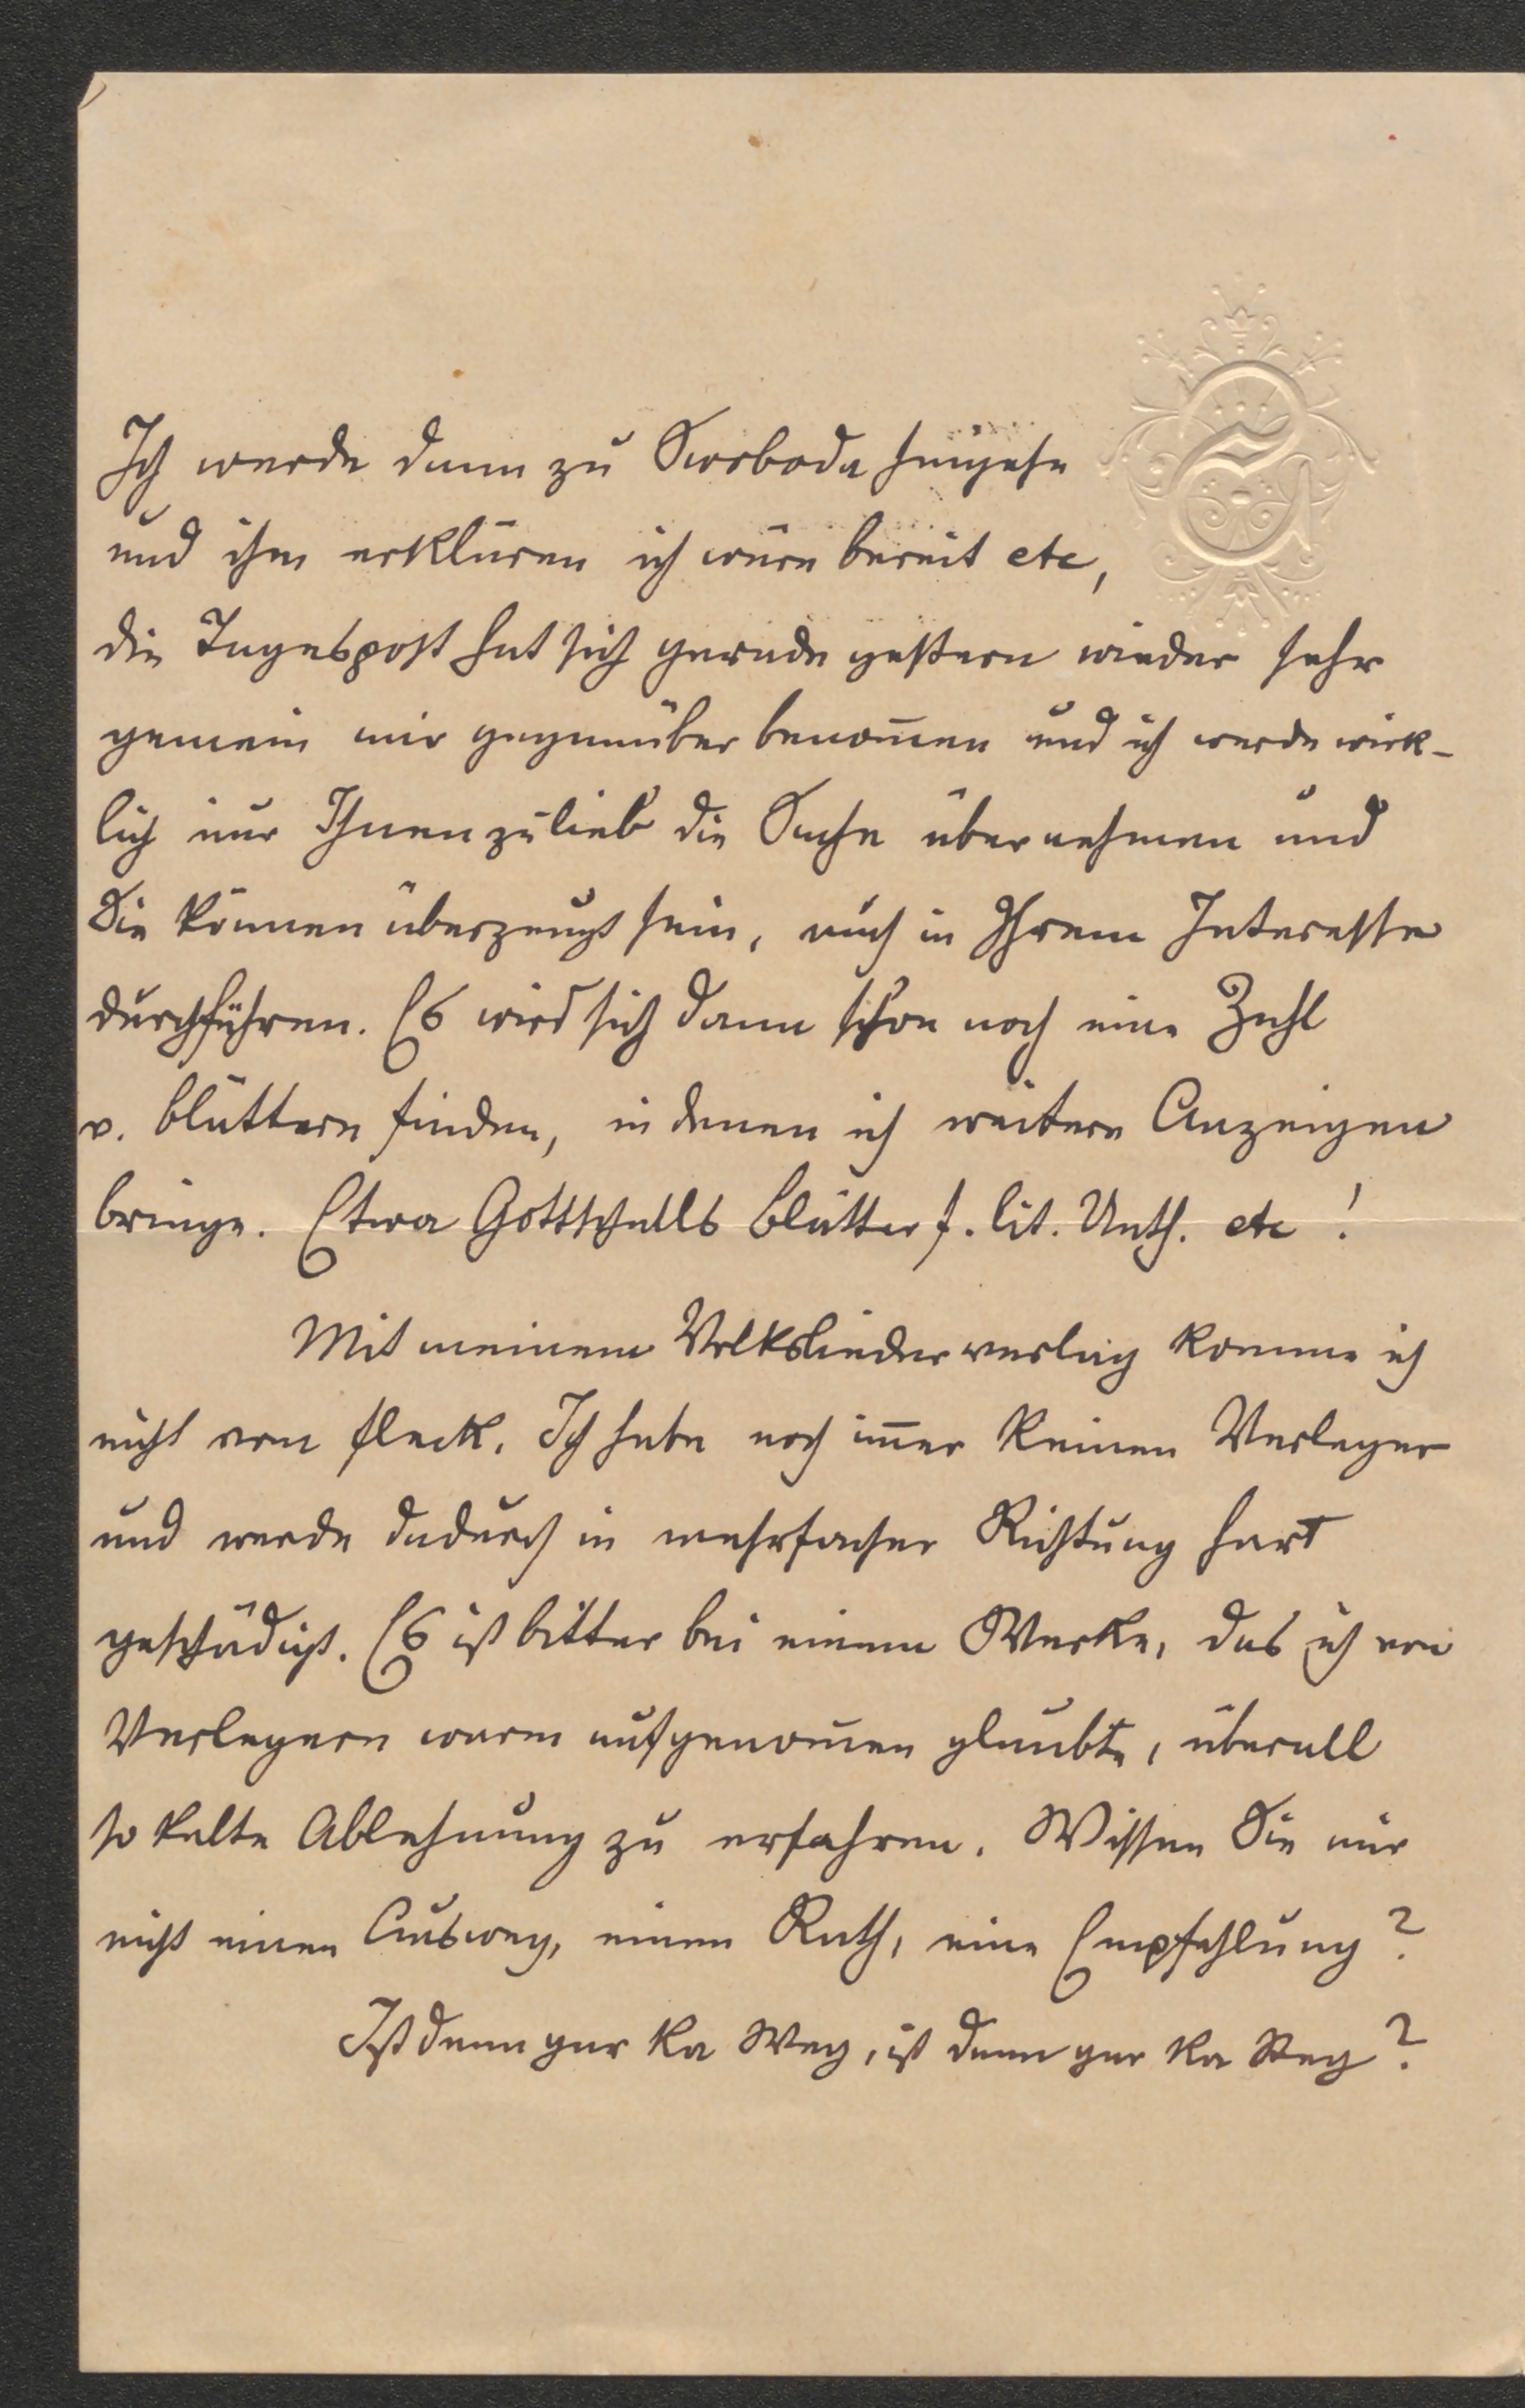 Ich werde dann zu Swoboda hingehn
und ihm erklären ich wäre bereit etc,
die Tagespost hat sich gerade gestern wieder sehr
gemein mir gegenüber benom̄en und ich werde wirk-
lich nur Ihnen zulieb die Sache übernehmen und
Sie können überzeugt sein, auch in Ihrem Interesse
durchführen. Es wird sich dann schon noch eine Zahl
v. Blättern finden, in denen ich weitere Anzeigen
bringe. Etwa Gottschalls Blätter f. lit. Unth. etc !
Mit meinem Volksliederverlag komme ich
nicht vom Fleck. Ich habe noch im̄er keinen Verleger
und werde dadurch in mehrfacher Richtung hart
geschädigt. Es ist bitter bei einem Werke, das ich von
Verlegern warm aufgenom̄en glaubte, überall
so kalte Ablehnung zu erfahren. Wissen Sie mir
nicht einen Ausweg, einen Rath, eine Empfehlung?
Ist denn gar ka Weg, ist denn gar ka Steg?